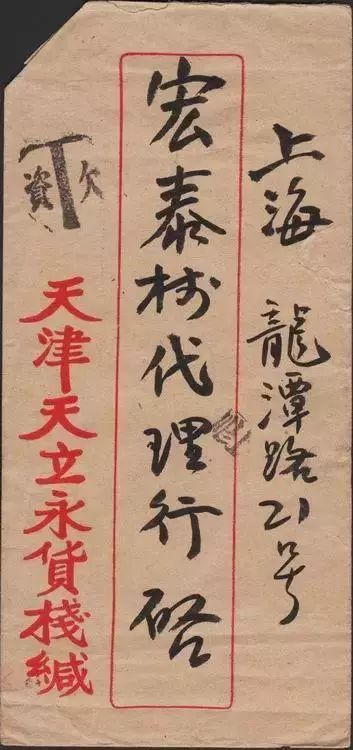 上海 龍潭路21号
宏泰 代理行 啓
欠 T 資
天津天立永貨棧緘